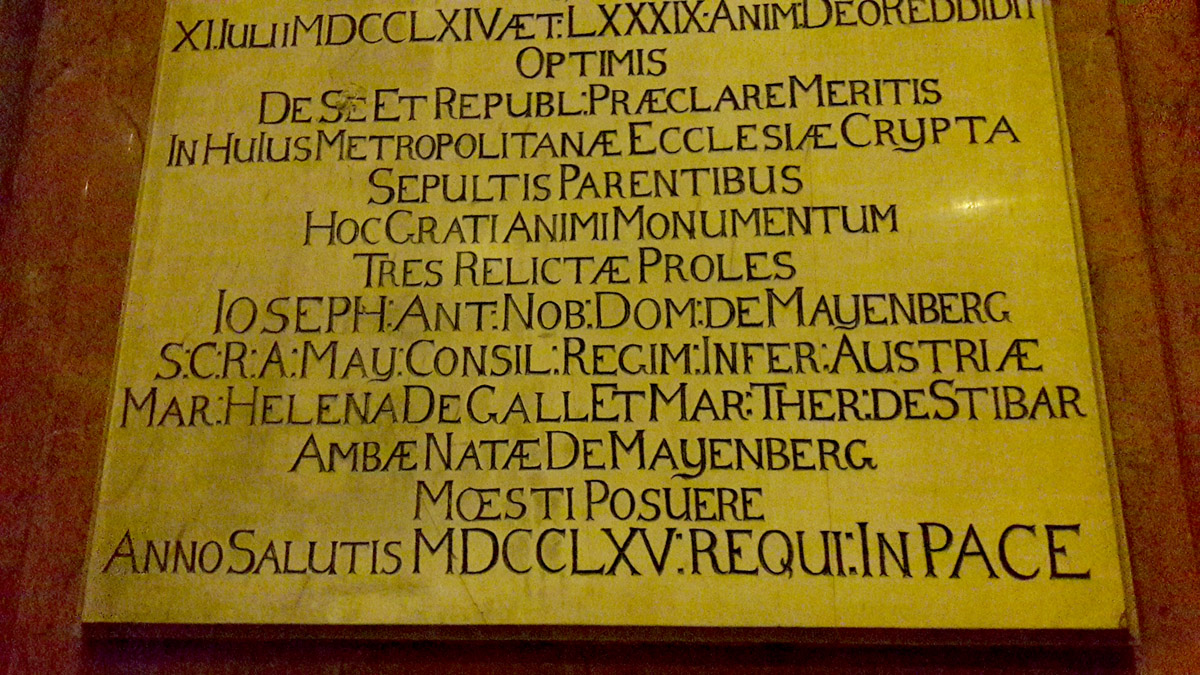 XI. IULII MDCCLXIV ÆT: LXXXIX. ANIM: DEO REDDIDIT
OPTIMIS
DE SE ET REPUBL: PRÆCLARE MERITIS
IN HUIUS METROPOLITANÆ ECCLESIÆ CRYPTA
SEPULTIS PARENTIBUS
HOC GRATI ANIMI MONUMENTUM
TRES RELICTÆ PROLES
IOSEPH: ANT: NOB: DOM: DE MAYENBERG
S: C: R: A: MAY: CONSIL: REGIM: INFER: AUSTRIÆ
MAR: HELENA DE GALL ET MAR: THER: DE STIBAR
AMBÆ NATÆ DE MAYENBERG
MŒSTI POSUERE
ANNO SALUTIS MDCCLXV: REQUI: IN PACE